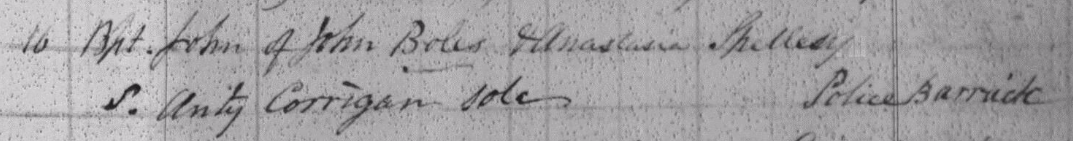 16 Bpt. John of John Boles & Anastasia Shelley
S. Anty Corrigan sole Police Barrack